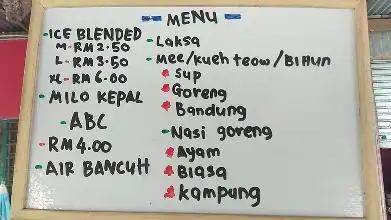 MENU
-ICE BLENDED
M-RM 2.50
L-RM 3.50
XL-RM 6.00
-MILO KEPAL
-ABC
-RM 4.00
-AIR BANCUH
-Laksa
-Mee/kueh teow/BIHUN
Sup
Goreng
Bandung
-Nasi goreng
Ayam
Biasa
Kampung